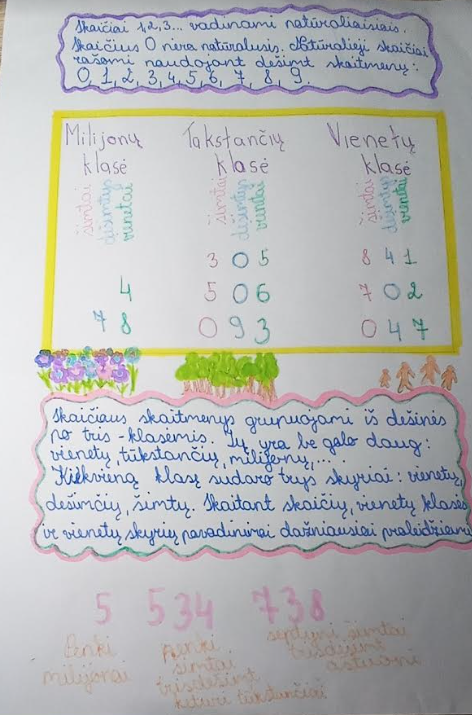 Skaičiai 1,2,3... vadinami natūraliaisiais.
Skaičius 0 nėra natūralusis. Natūralieji skaičiai
rašomi naudojant dešimt skaitmenų:
0, 1, 2, 3, 4, 5, 6, 7, 8, 9.
Milijonų Tūkstančių Vienetų
klasė klasė klasė
šimtai dešimtys vienetai šimtai dešimtys vienetai šimtai dešimtys vienetai
3 0 5 8 4 1
4 5 0 6 7 0 2
7 8 0 9 3 0 4 7
Skaičiaus skaitmenys grupuojami iš dešinės
po tris - klasėmis. Jų yra be galo daug:
vienetų, tūkstančių, milijonų,...
Kiekvieną klasę sudaro trys skyriai: vienetų,
dešimčių, šimtų. Skaitant skaičių, vienetų klasės
ir vienetų skyrių pavadinimai dažniausiai praleidžiami
5 534 738
Penki penki septyni šimtai
milijonai šimtai trisdešimt
trisdešimt aštuoni
keturi tūkstančiai